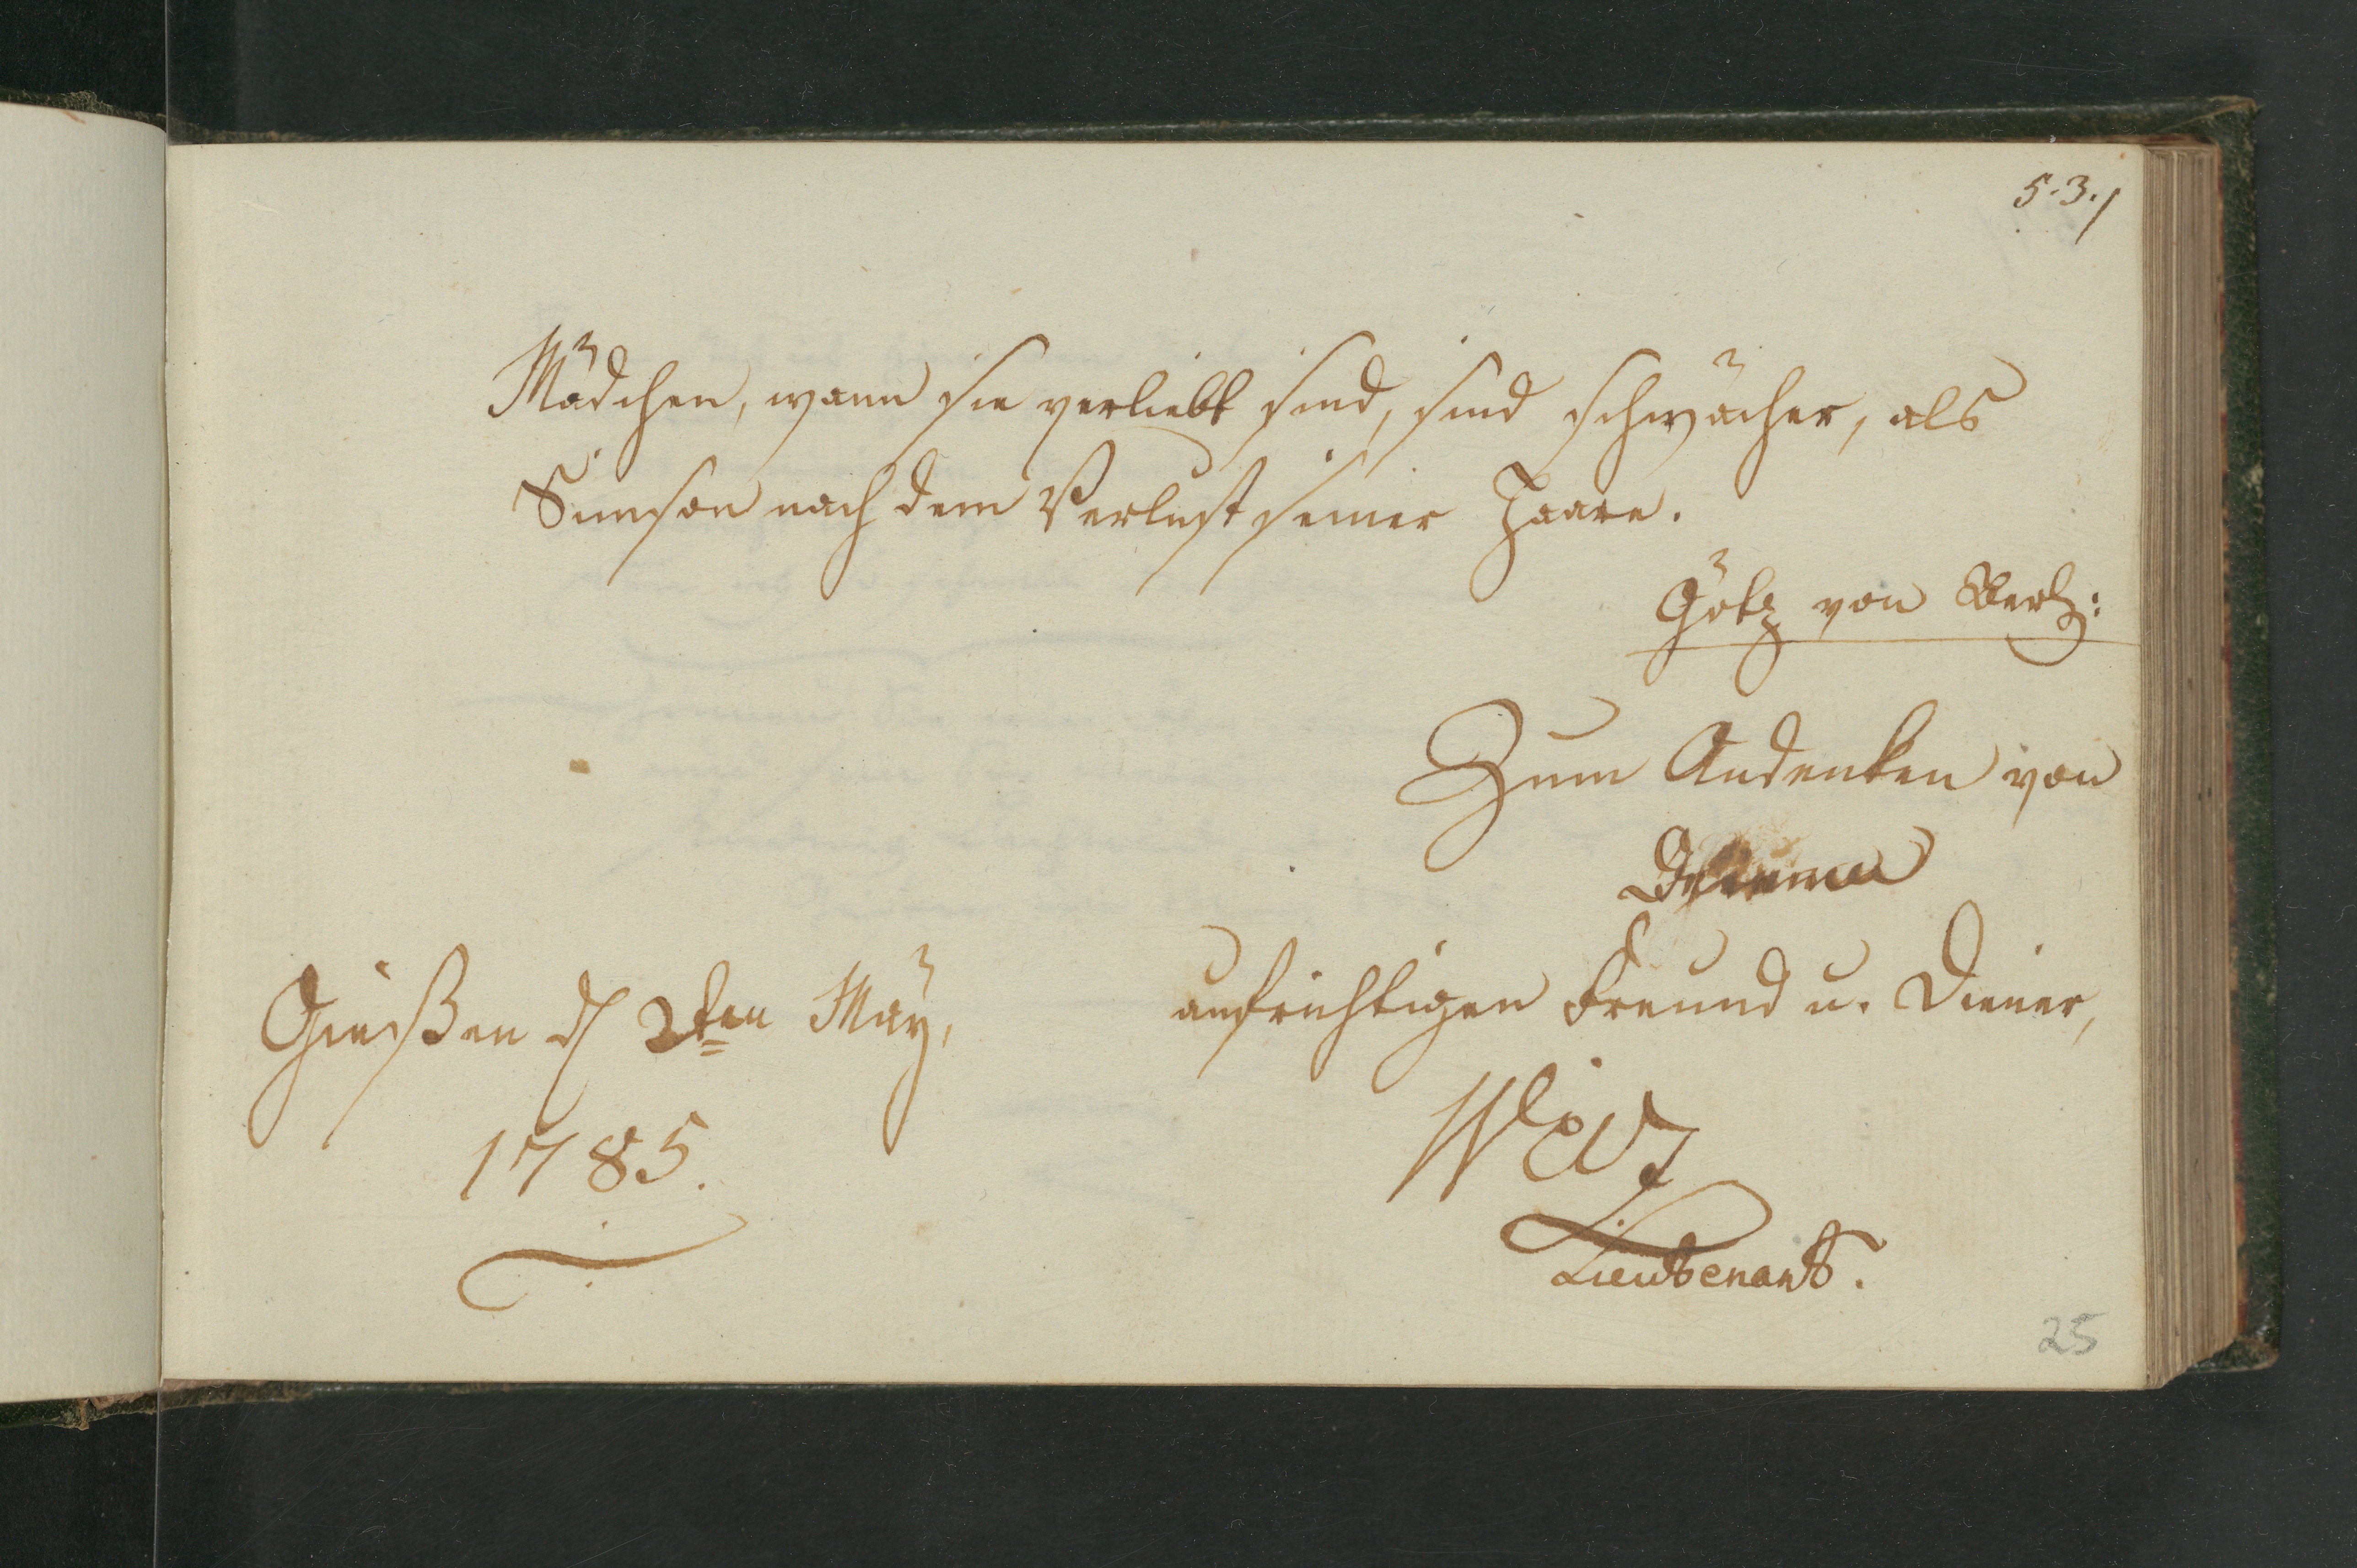 5.3./
Mädchen, wann sie verliebt sind, sind schwächer, als
Simson nach dem Verlust seiner Haare.
Götz von Berl:
Zum Andenken von
aufrichtigen Freund u. Diener,
Gießen d 2ten May,
1785.
Lieutenant.
25